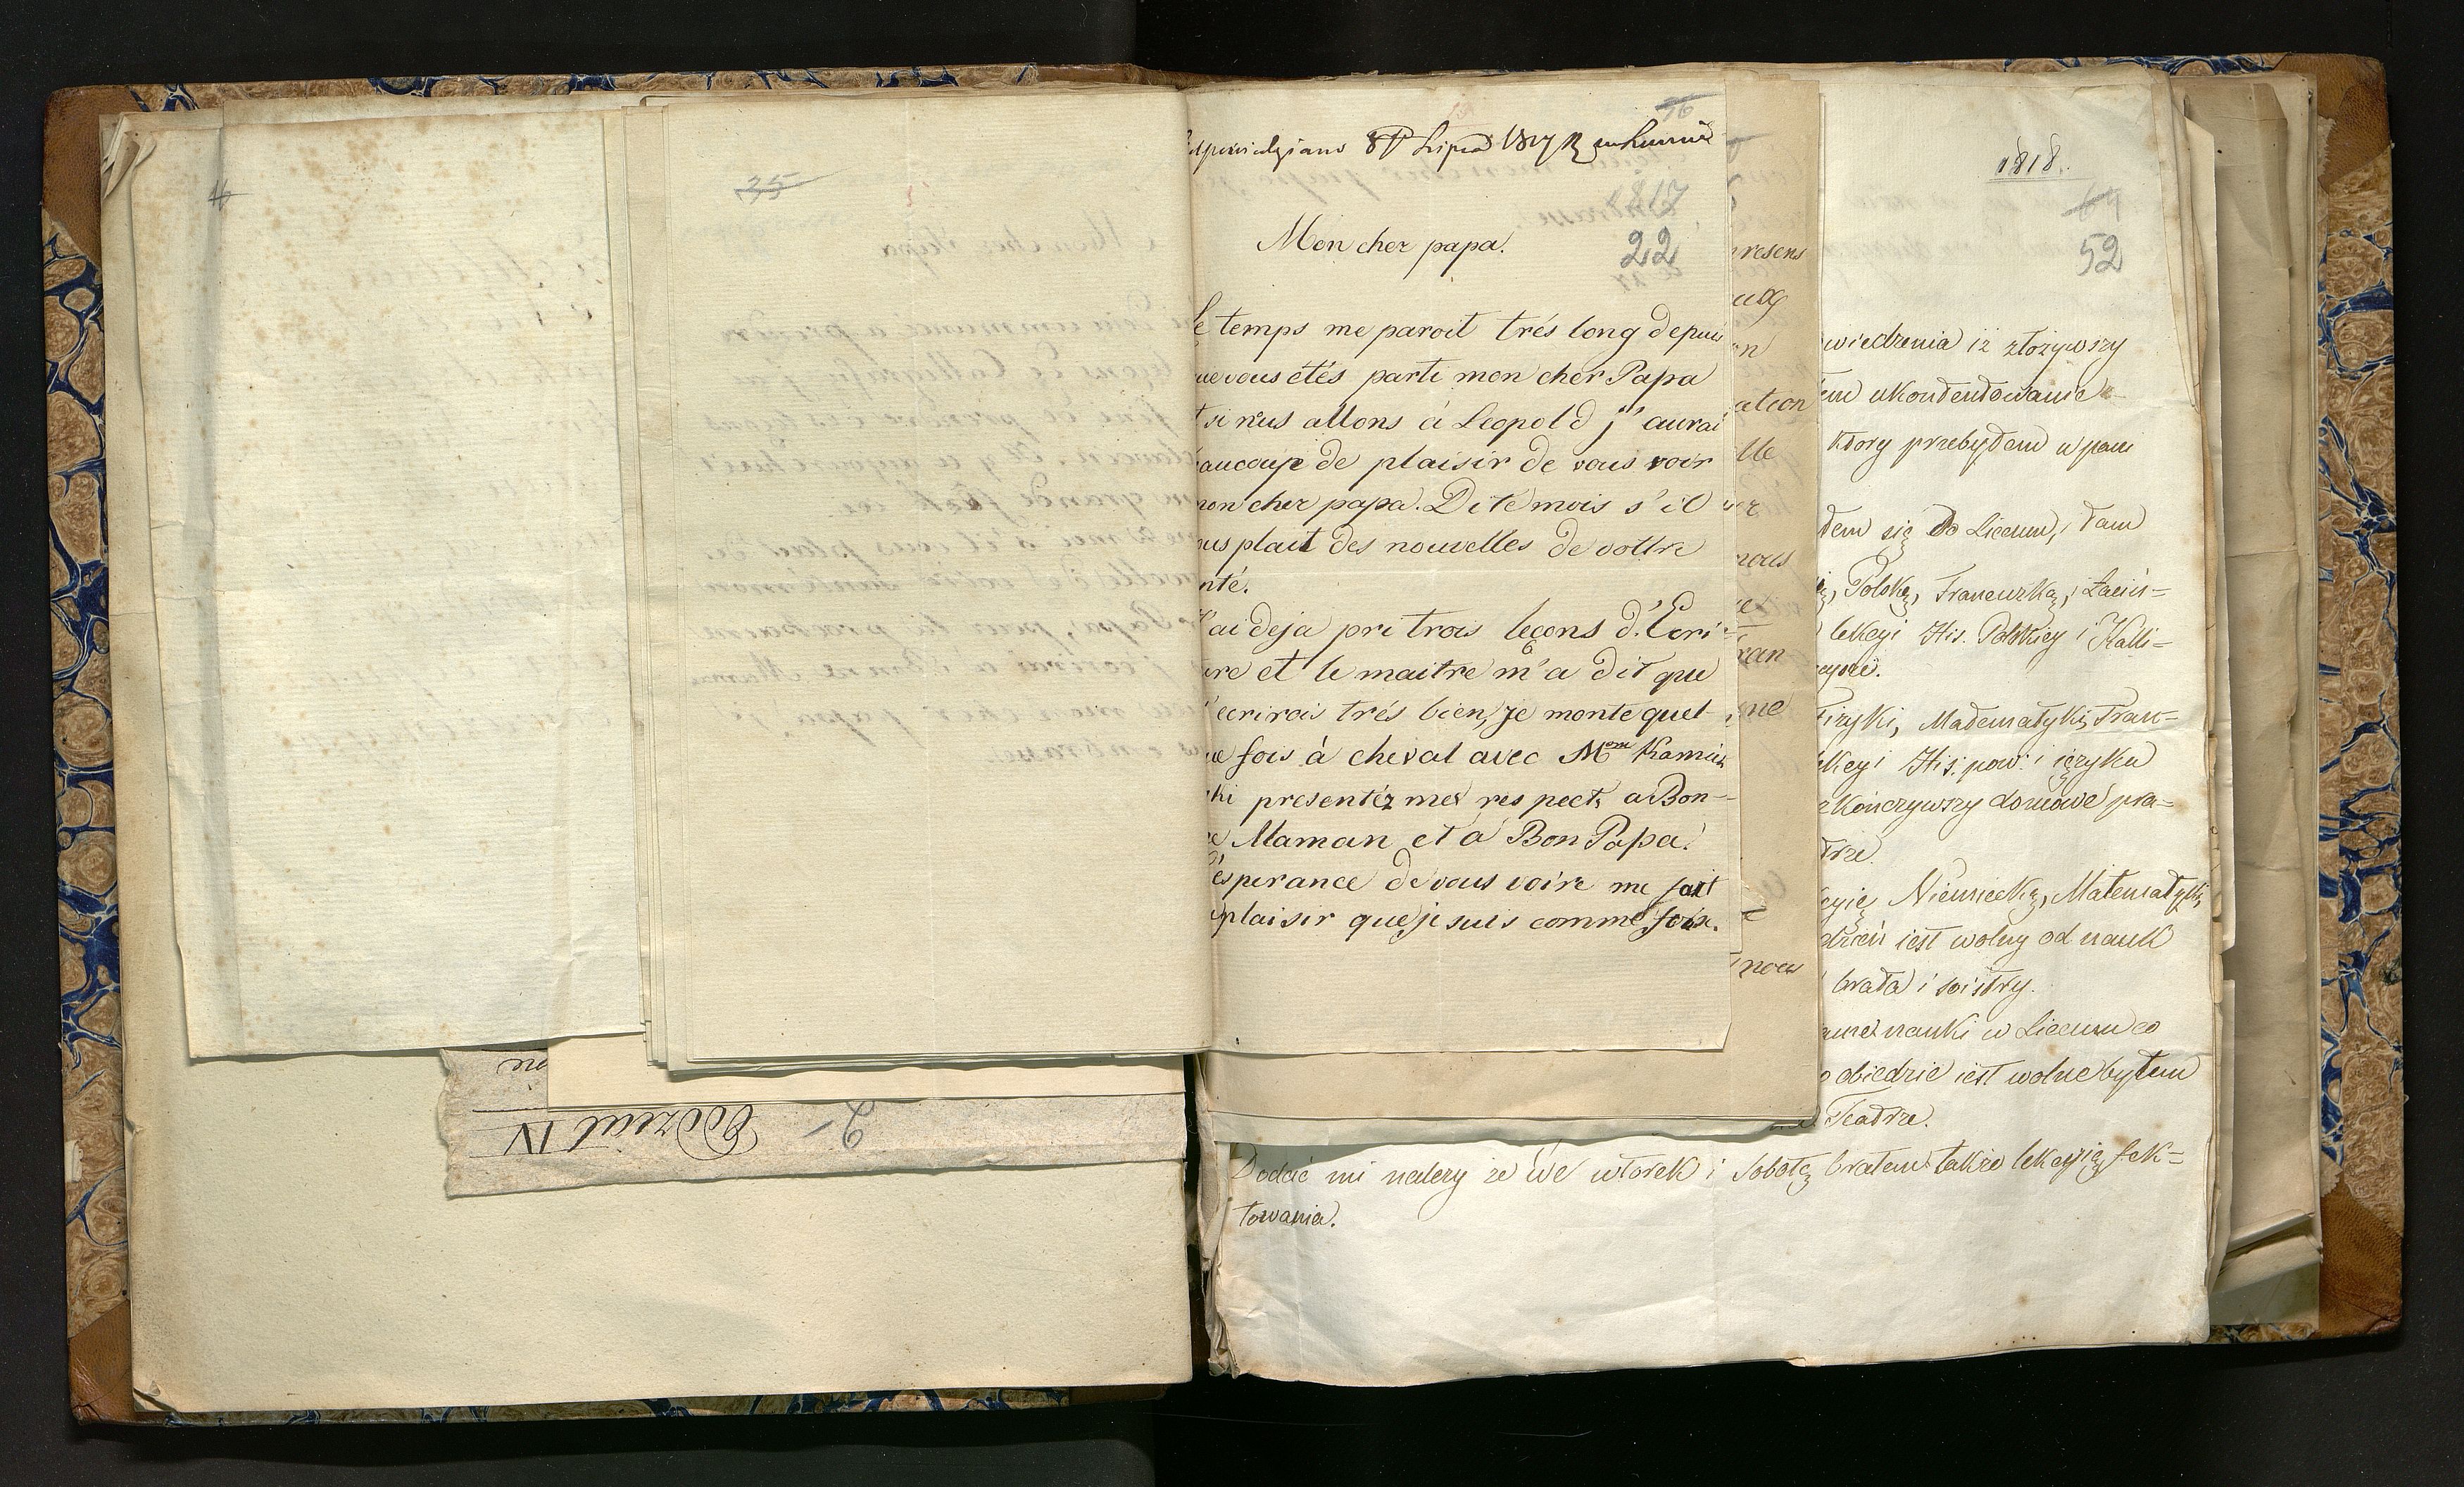 35
36
8 Lipca 1817
1817
Mon cher papa.
22
Le temps me paroit trés long depuis
ue vous étés parti mon cher Papa
t si nus allons à Leopold j'aurai
aucoup de plaisir de vous voir
mon cher papa. Dite mois s'il
ous plait des nouvelles de vottre
nté.
J'ai deja pri trois leçons d'Ecri-
ure et le maitre m'a dit que
j'ecrirois trés bien, je monte quel-
ue fois à cheval avec Mm Kamin
ki presentéz mes respects a Bon-
e Maman et à Bon Papa.
L'ésperance de vous voire me fait
plaisir que je suis comme fou.
resens
ation
lle
nous
ran
ne
nous
1818.
52
wiedzenia iż złożywszy
em ukontentowanie
ktory przebyłem w pani
łem się do Liceum, tam
Polską, Francuzką, Łaciń=
lekcyi His. Polskiey i Kalli=
Fizyki, Matematyki, Fran=
kcyi His. pow. i ięzyku
kończywszy domowe pra=
trze.
cyię Niemiecką, Matematyki,
dzień iest wolny od nauk
brata i siostry.
ame nauki w Liceum co
o obiedzie iest wolne byłem
Teatrze.
Dodać mi należy że we wtorek i Sobotę brałem także lekcyią fek=
towania.
nie
2 -
Oddział IV